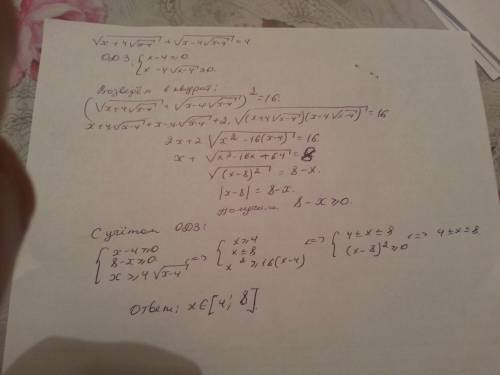 √(x+4√(x-4)) + √(x-4√(x-4)) = 4
ОДЗ: { x-4≥0
x-4√(x-4) ≥0.
Возведём в квадрат:
(√(x+4√(x-4)) + √(x-4√(x-4)))² = 16.
x+4√(x-4) + x-4√(x-4) + 2·√((x+4√(x-4))(x-4√(x-4))) = 16
2x+2√(x²-16(x-4)) = 16
x + √(x²-16x+64) = 8
√((x-8)²) = 8-x.
|x-8| = 8-x.
Получаем 8-x≥0.
С учётом ОДЗ:
{ x-4≥0 8-x≥0 x≥4√(x-4) <=> { x≥4 x≤8 x²≥16(x-4) <=> { 4≤x≤8 (x-8)²≥0 <=> 4≤x≤8
Ответ: x∈[4; 8].